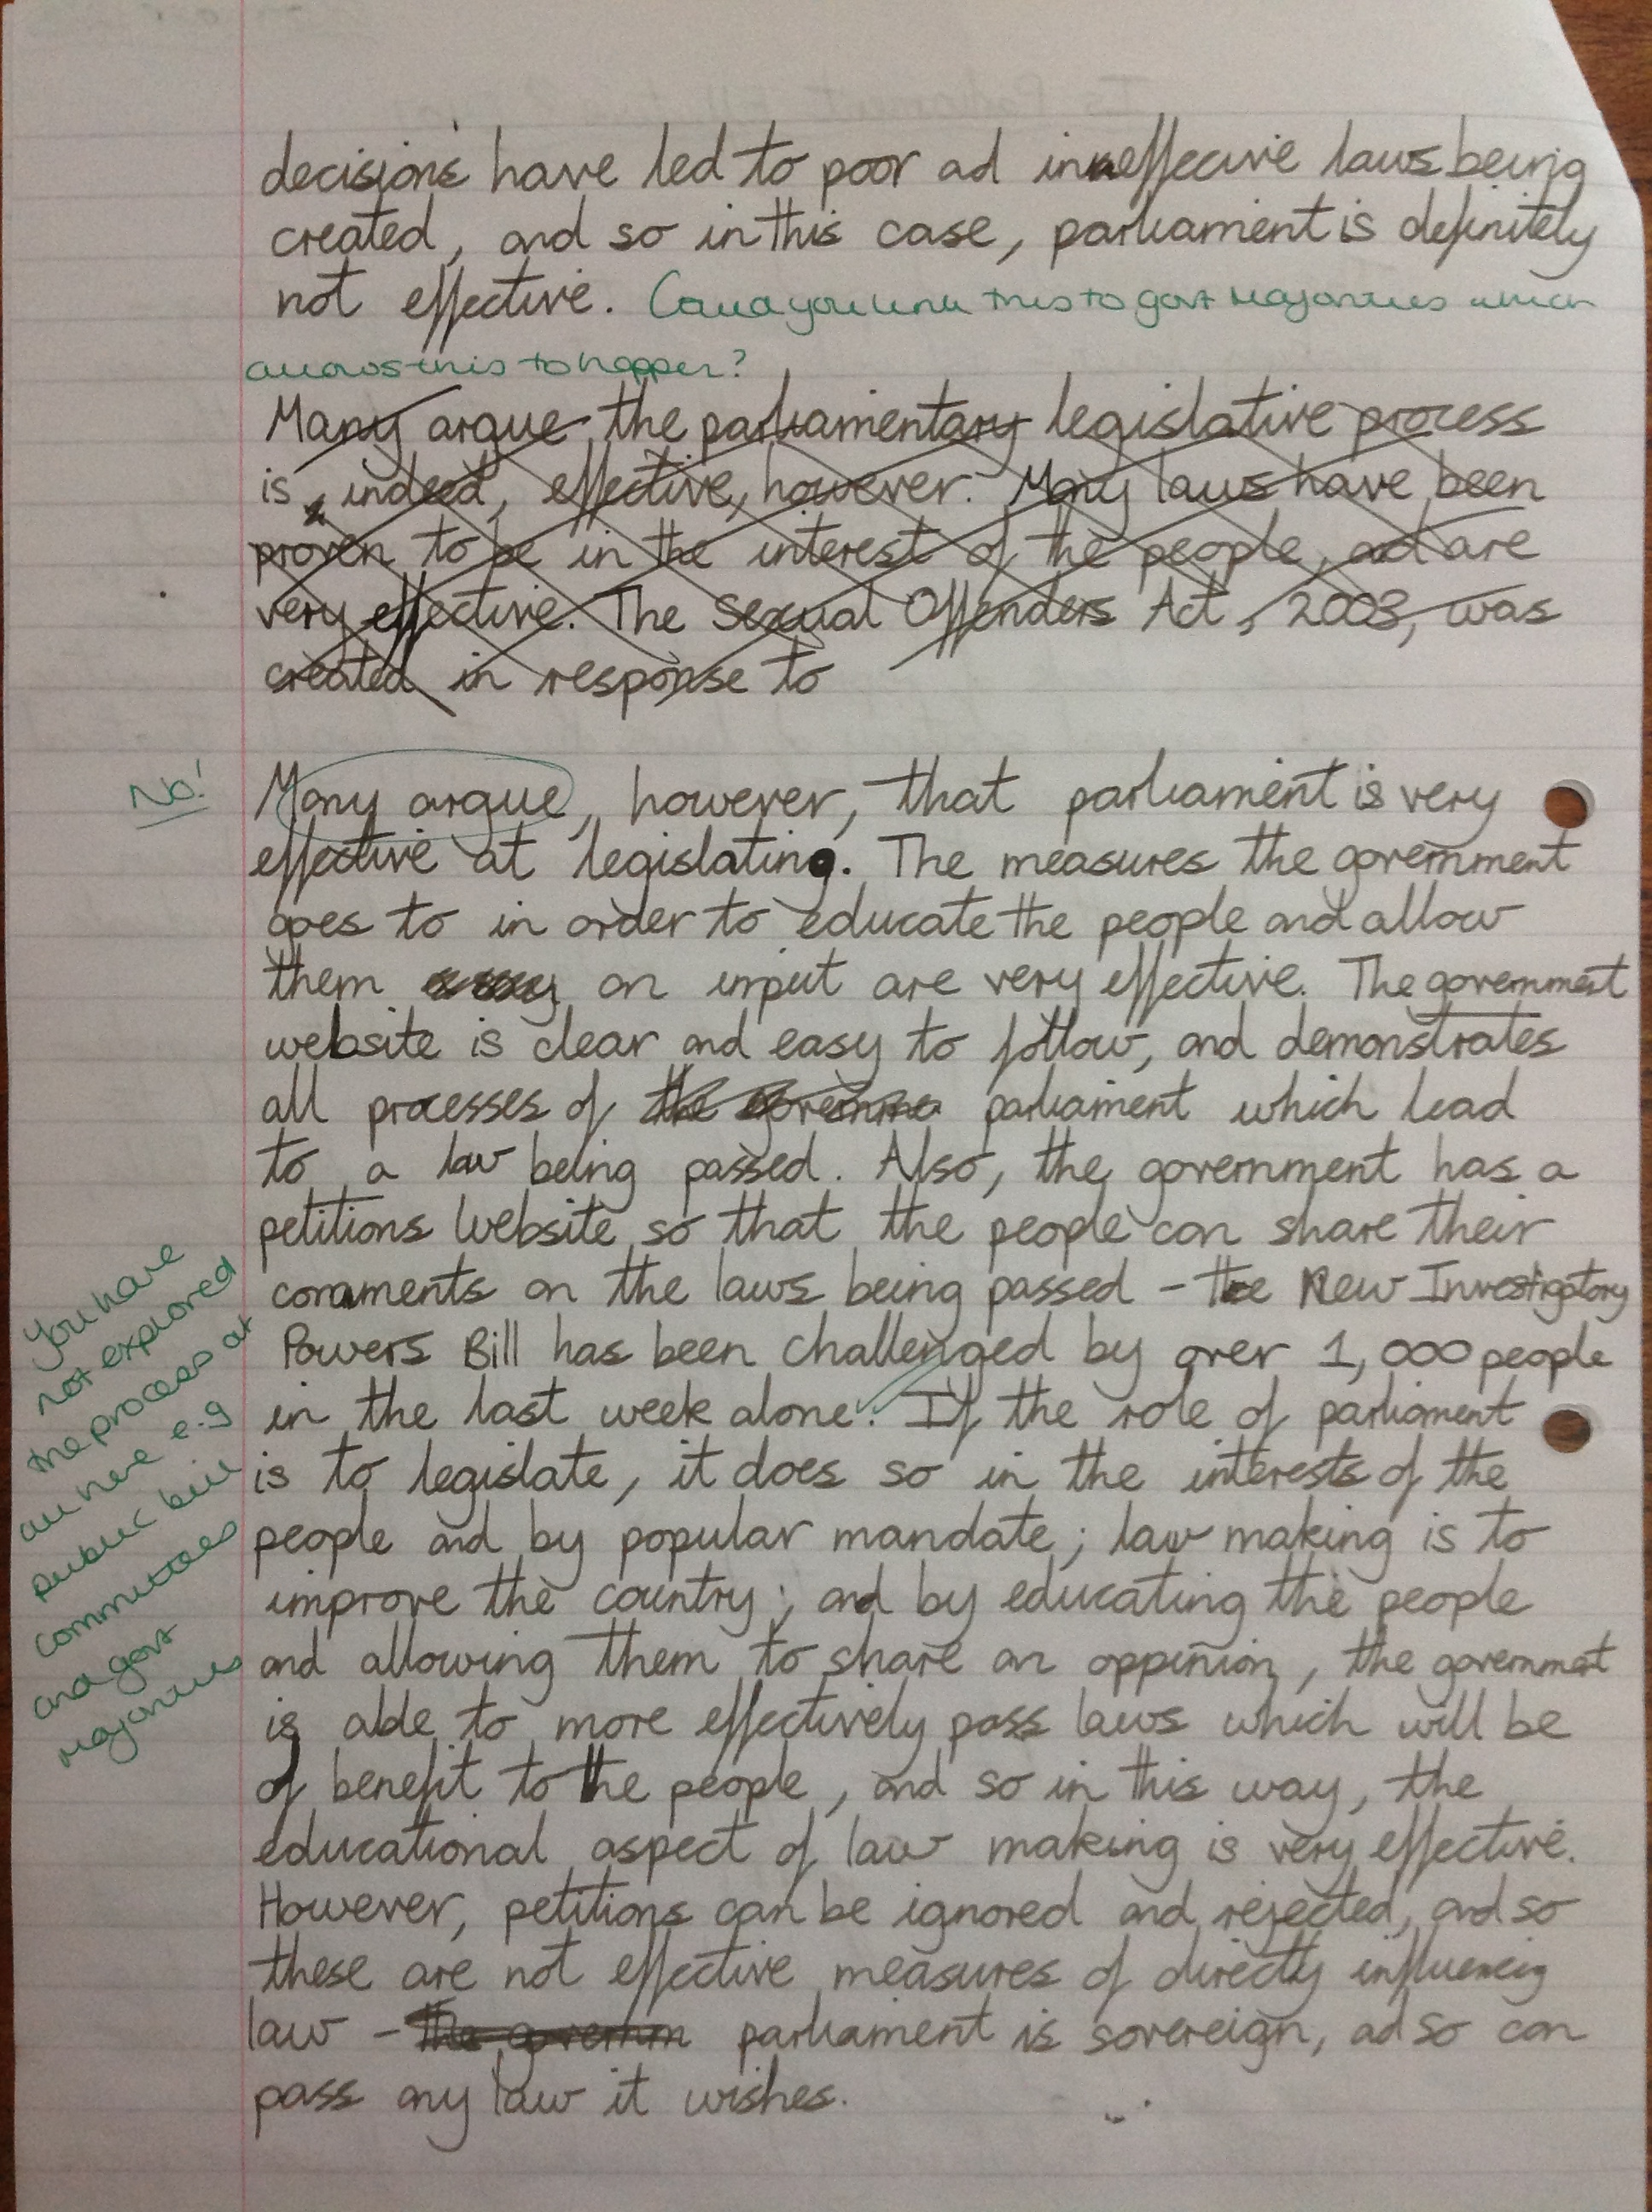 decisions have led to poor ad ineffective laws being
created, and so in this case, parliament is definitely
not effective. Could you link this to govt majorities which
allows this to happen?
Many argue the parliamentary legislative process
is, indeed, effective, however. Many laws have been
proven to be in the interest of the people, ad are
very effective. The Sexual Offenders Act, 2003, was
created in response to
No!
Many argue, however, that parliament is very
effective at legislating. The measures the government
goes to in order to educate the people and allow
them an input are very effective. The government
website is clear and easy to follow, and demonstrates
all processes of the governme parliament which lead
to a law being passed. Also, the government has a
petitions website so that the people can share their
comments on the laws being passed - the New Investigatory
Powers Bill has been challenged by over 1,000 people
in the last week alone. If the role of parliament
is to legislate, it does so in the interests of the
people and by popular mandate; law making is to
improve the country; and by educating the people
and allowing them to share an oppinion, the government
is able to more effectively pass laws which will be
of benefit to the people, and so in this way, the
educational aspect of law making is very effective.
However, petitions can be ignored and rejected, and so
these are not effective measures of directly influencing
law - the governm parliament is sovereign, ad so can
pass any law it wishes.
You have
not explored
the process at
all here e.g
public bill
committees
and govt
majorities